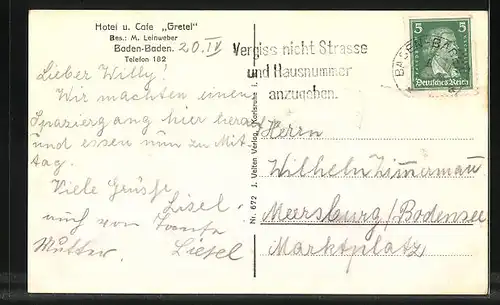 Hotel u. Cafe „Gretel"
Bes.: M. Leinweber
Baden-Baden.
Telefon 182
20. IV
Lieber Willy!
Wir machten einen
Spaziergang hier herauf
und essen nun zu Mit-
tag.
Viele Grüsse
Lisel.
auch von
Mutter. Liesel
Nr. 672 J. Velten Verlag, Karlsruhe i.
Vergiss nicht Strasse
und Hausnummer
anzugeben.
BADEN-BADEN
5 5
Deutsches Reich
Herrn
Wilhelm Zimmermann
Meersburg/Bodensee
Marktplatz